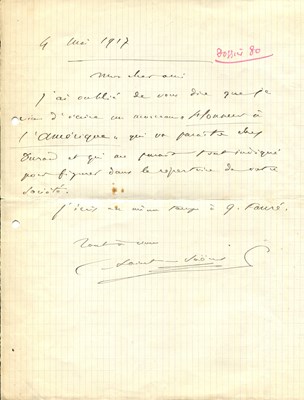 4 Mai 1917
Dossier 80
Mon cher ami
J'ai oublié de vous dire que je
viens d'écrire un morceau « Honneur à
l'Amérique » qui va paraître chez
Durand et qui me paraît tout indiqué
pour figurer dans le répertoire de votre
Société.
J'écris en même temps à G. Fauré.
Tout à vous
Saint-Saëns